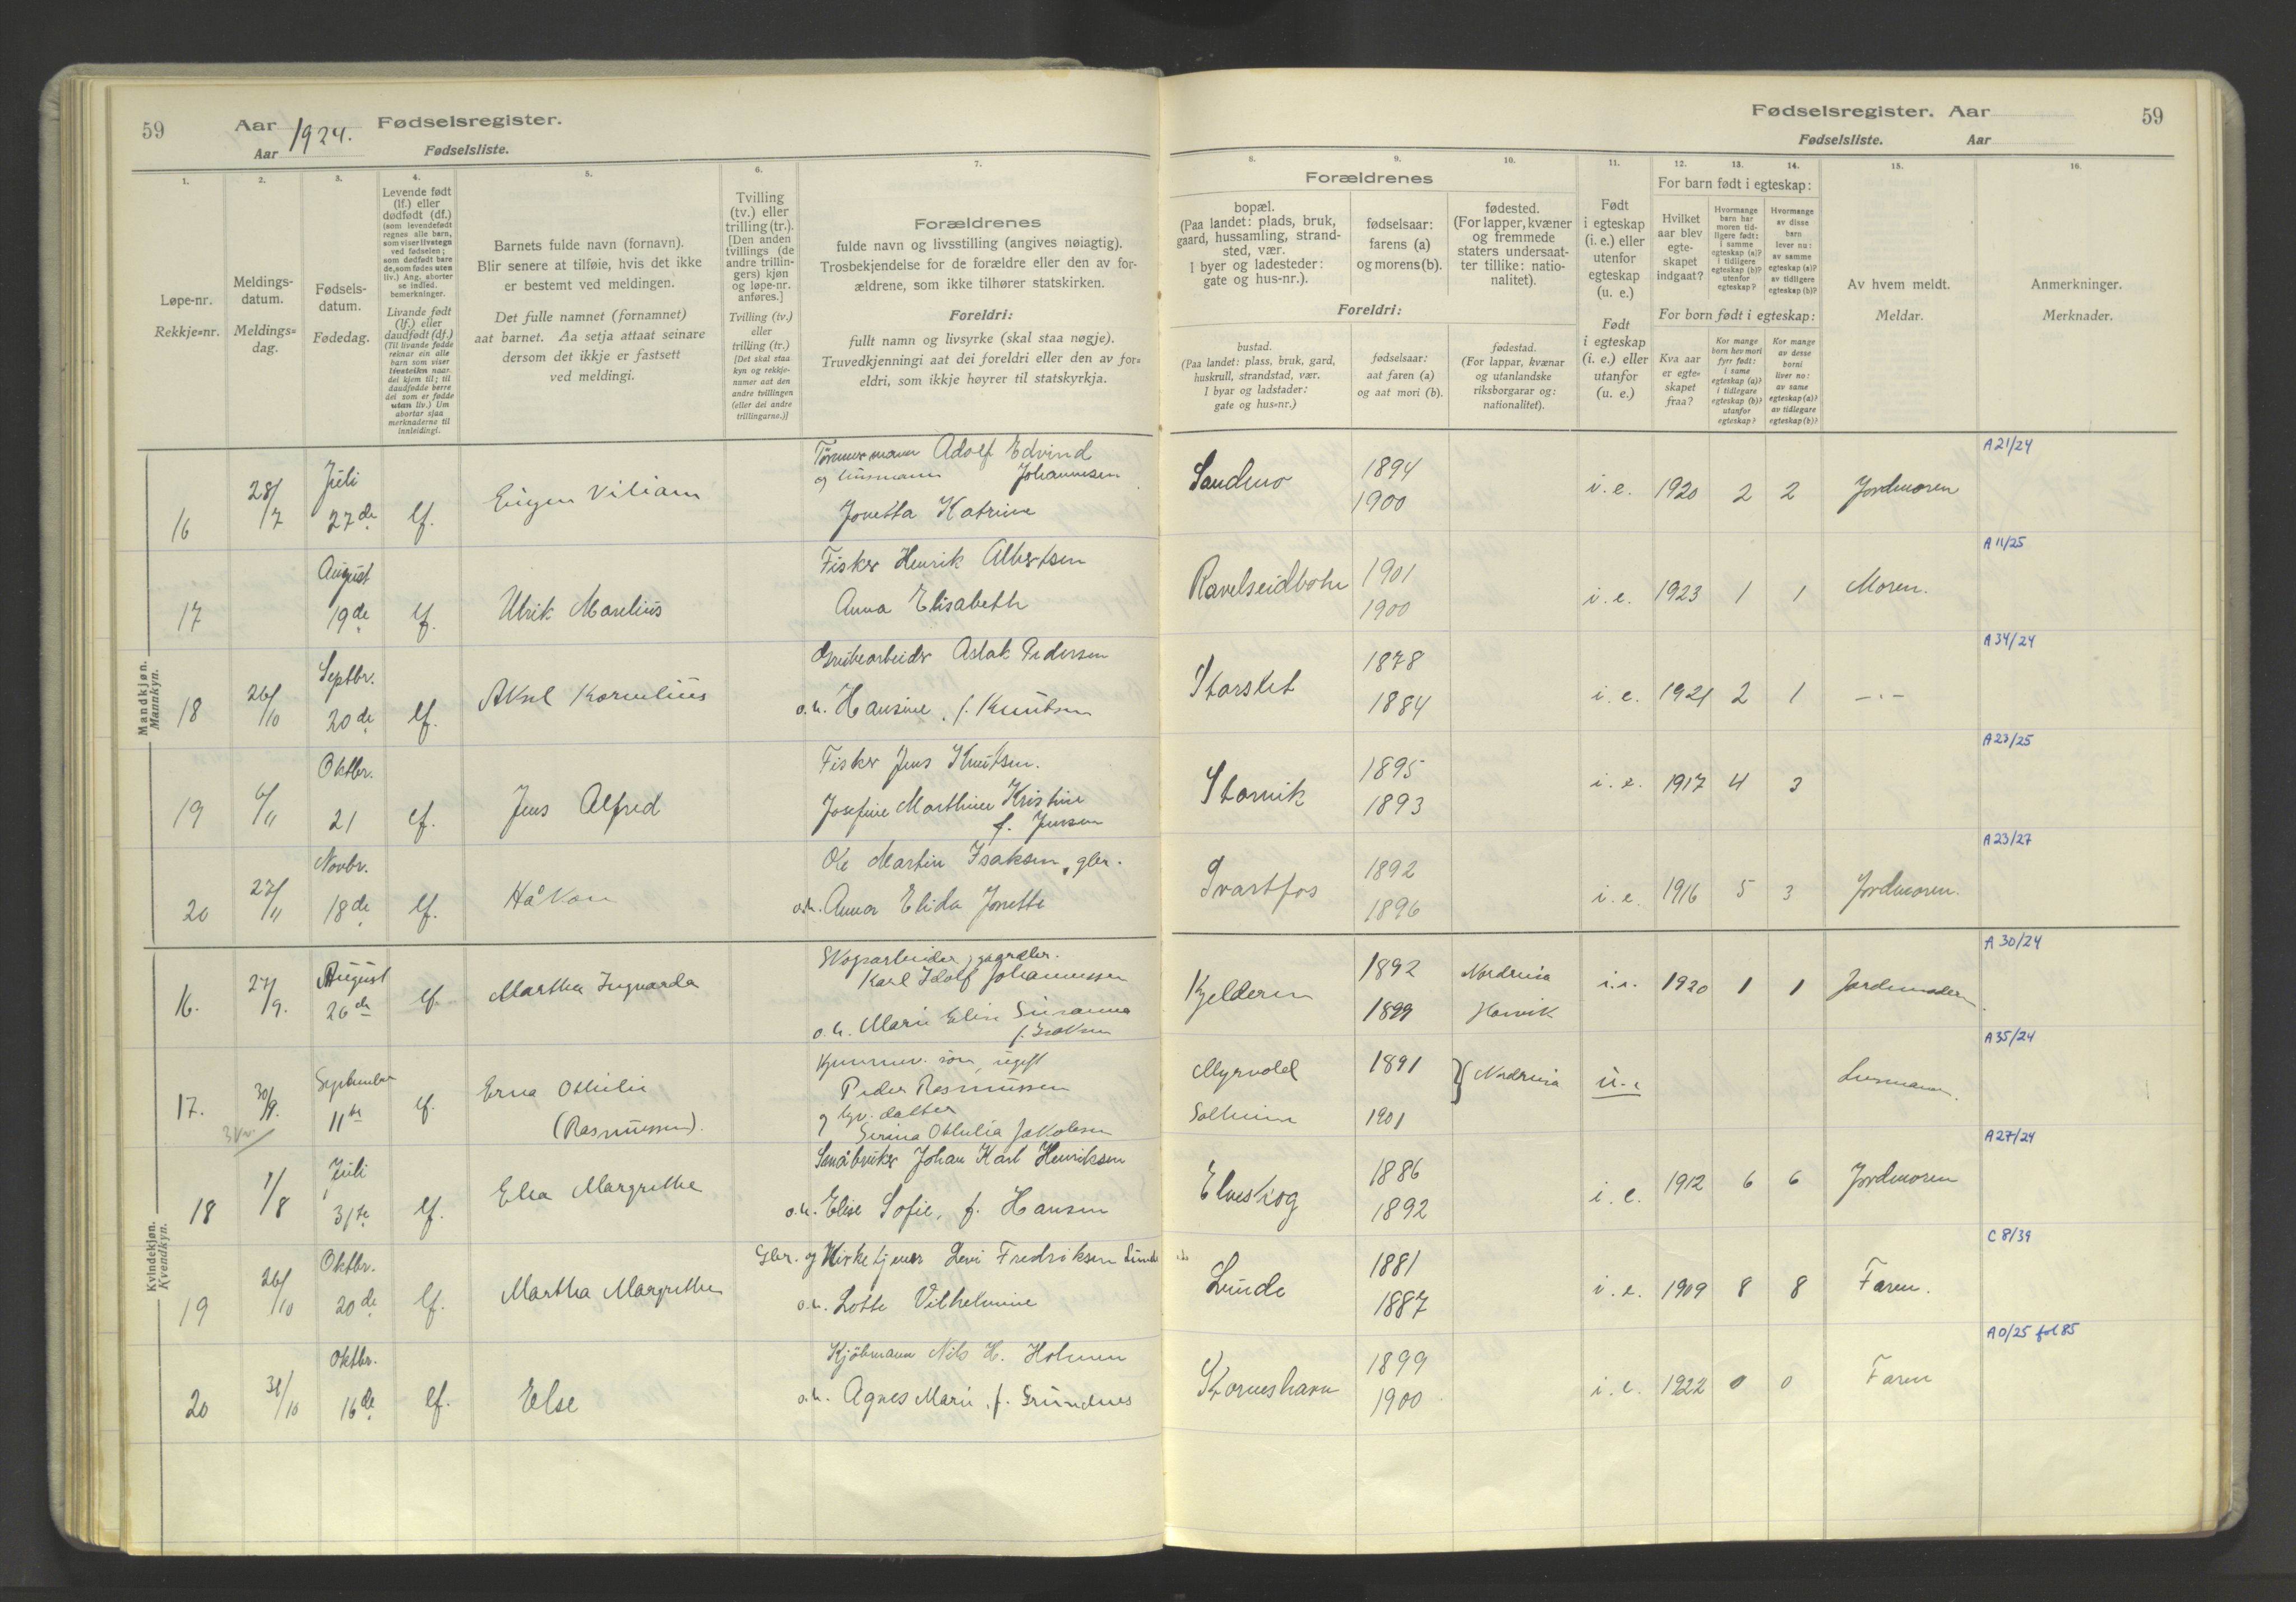 59
Aar 1924. Fødselsregister.
Aar Fødselsliste.
1. 2. 3. 4. 5. 6. 7.
Løpe-nr.
Rekkje=nr.
Meldings-
datum.
Meldings=
dag.
Fødsels-
datum.
Fødedag.
Levende født
(lf.) eller
dødfødt (df.)
(som levendefødt
regnes alle barn,
som viser livstegn
ved fødselen;
som dødfødt bare
de, som fødes uten
liv.) Ang. aborter
se indled.
bemerkninger.
Livande født
(lf.) eller
daudfødt (df.)
(Til livande fødde
reknar ein alle
barn som viser
livsteikn naar
dei kjem til; til
daudfødde berre
dei som er fødde
utan liv.) Um
abortar sjaa
merknaderne til
innleidingi.
Barnets fulde navn (fornavn).
Blir senere at tilføie, hvis det ikke
er bestemt ved meldingen.
Det fulle namnet (fornamnet)
aat barnet. Aa setja attaat seinare
dersom det ikkje er fastsett
ved meldingi.
Tvilling
(tv.) eller
trilling (tr.).
[Den anden
tvillings (de
andre trillin-
gers) kjøn
og løpe-nr.
anføres.]
Tvilling (tv.)
eller
trilling (tr.)
[Det skal staa
kyn og rekkje-
numer aat den
andre tvillingen
(eller dei andre
trillingarne.)]
Forældrenes
fulde navn og livsstilling (angives nøiagtig).
Trosbekjendelse for de forældre eller den av for-
ældrene, som ikke tilhører statskirken.
Foreldri:
fullt namn og livsyrke (skal staa nøgje).
Truvedkjenningi aat dei foreldri eller den av for=
eldri, som ikkje høyrer til statskyrkja.
Mandkjøn.
Mannkyn.
16 28/7 Juli 27de lf. Eugen Viliam
Tømmermann Adolf Edvind
og Johannesen
Jonetta Katrine
17 August 19de lf. Ulrik Marelius
Fisker Henrik Albertsen
Anna Elisabeth
18 26/10 Septbr. 20de lf. Aksel Kornelius
Grubearbeider Aslak Pedersen
o.h. Hansine, f. Knutsen
19 6/11 Oktbr. 21 lf. Jens Alfred
Fisker Jens Knutsen.
Josefine Marthine Kristine
f. Jensen
20 27/11 Novbr. 18de lf. Håkon
Ole Martin Isaksen, gbr.
o.h. Anna Elida Jonette
Kvindekjøn.
Kvendkyn.
16. 27/9. August 26de lf. Martha Ingvarda
Skogarbeider,
Karl Idolf Johannessen
o.h. Marie Elise Susanna
f. Isaksen
17. 30/9. September 11te lf. Erna Othilie
(Rasmussen).
søn, ugift
Peder Rasmussen
og datter
Serina Othilia Jakobsen
18 1/8 Juli 31te lf. Elea Margrethe
Småbruker Johan Karl Henriksen
o.h. Elise Sofie, f. Hansen
19 26/10 Oktbr. 20de lf. Martha Margrethe
Gbr. og Kirketjener Levi Fredriksen Lunde
o.h. Lotte Vilhelmine
20 31/10 Oktbr. 16de lf. Else
Kjøbmann Nils H. Holmen
o.h. Agnes Marie, f. Grundnes
Fødselsregister. Aar 59
Fødselsliste. Aar
8. 9. 10. 11. 12. 13. 14. 15. 16.
Forældrenes
bopæl.
(Paa landet: plads, bruk,
gaard, hussamling, strand-
sted, vær.
I byer og ladesteder:
gate og hus-nr.).
fødselsaar:
farens (a)
og morens (b).
fødested.
(For lapper, kvæner
og fremmede
staters undersaat-
ter tillike: natio-
nalitet).
Foreldri:
bustad.
(Paa landet: plass, bruk, gard,
huskrull, strandstad, vær.
I byar og ladstader:
gate og hus=nr.)
fødselsaar:
aat faren (a)
og aat mori (b).
fødestad.
(For lappar, kvænar
og utanlandske
riksborgarar og:
nationalitet).
Født
i egteskap
(i. e.) eller
utenfor
egteskap
(u. e.)
Født
i egteskap
(i. e.) eller
utanfor
(u. e.)
For barn født i egteskap:
Hvilket
aar blev
egte-
skapet
indgaat?
Hvormange
barn har
moren tid-
ligere født:
i samme
egteskap (a)?
i tidligere
egteskap (b)?
utenfor
egteskap?
Hvormange
av disse
barn
lever nu:
av samme
egteskap (a)?
av tidligere
egteskap (b)?
For born født i egteskap:
Kva aar
er egte=
skapet
fraa?
Kor mange
born hev mori
fyrr født:
i same
egteskap (a)?
i tidlegare
egteskap (b)?
utanfor
egteskap?
Kor mange
av desse
borni
liver no:
av same
egteskap (a)?
av tidlegare
egteskap (b)?
Av hvem meldt.
Meldar.
Anmerkninger.
Merknader.
Sandmo 1894 1900 i. e. 1920 2 2 Jordmoren A 21/24
Ravelseidbotn 1901 1900 i. e. 1923 1 1 Moren. A 11/25
Storslet 1878 1884 i. e. 1921 2 1 — . — A 34/24
Storvik 1895 1893 i. e. 1917 4 3 A 23/25
Svartfos 1892 1896 i. e. 1916 5 3 Jordmoren. A 23/27
Kjelderen 1892 1899 Nordreisa i. e. 1920 1 1 Jordemoderen A 30/24
Myrvold 1891 Nordreisa u. e. Lensmannen. A 35/24
Solheim 1901
Elveskog 1886 1892 i. e. 1912 6 6 Jordmoren A 27/24
Lunde 1881 1887 i. e. 1909 8 8 Faren. C 8/39
Storneshavn 1899 1900 i. e. 1922 0 0 Faren A 0/25 fol 85